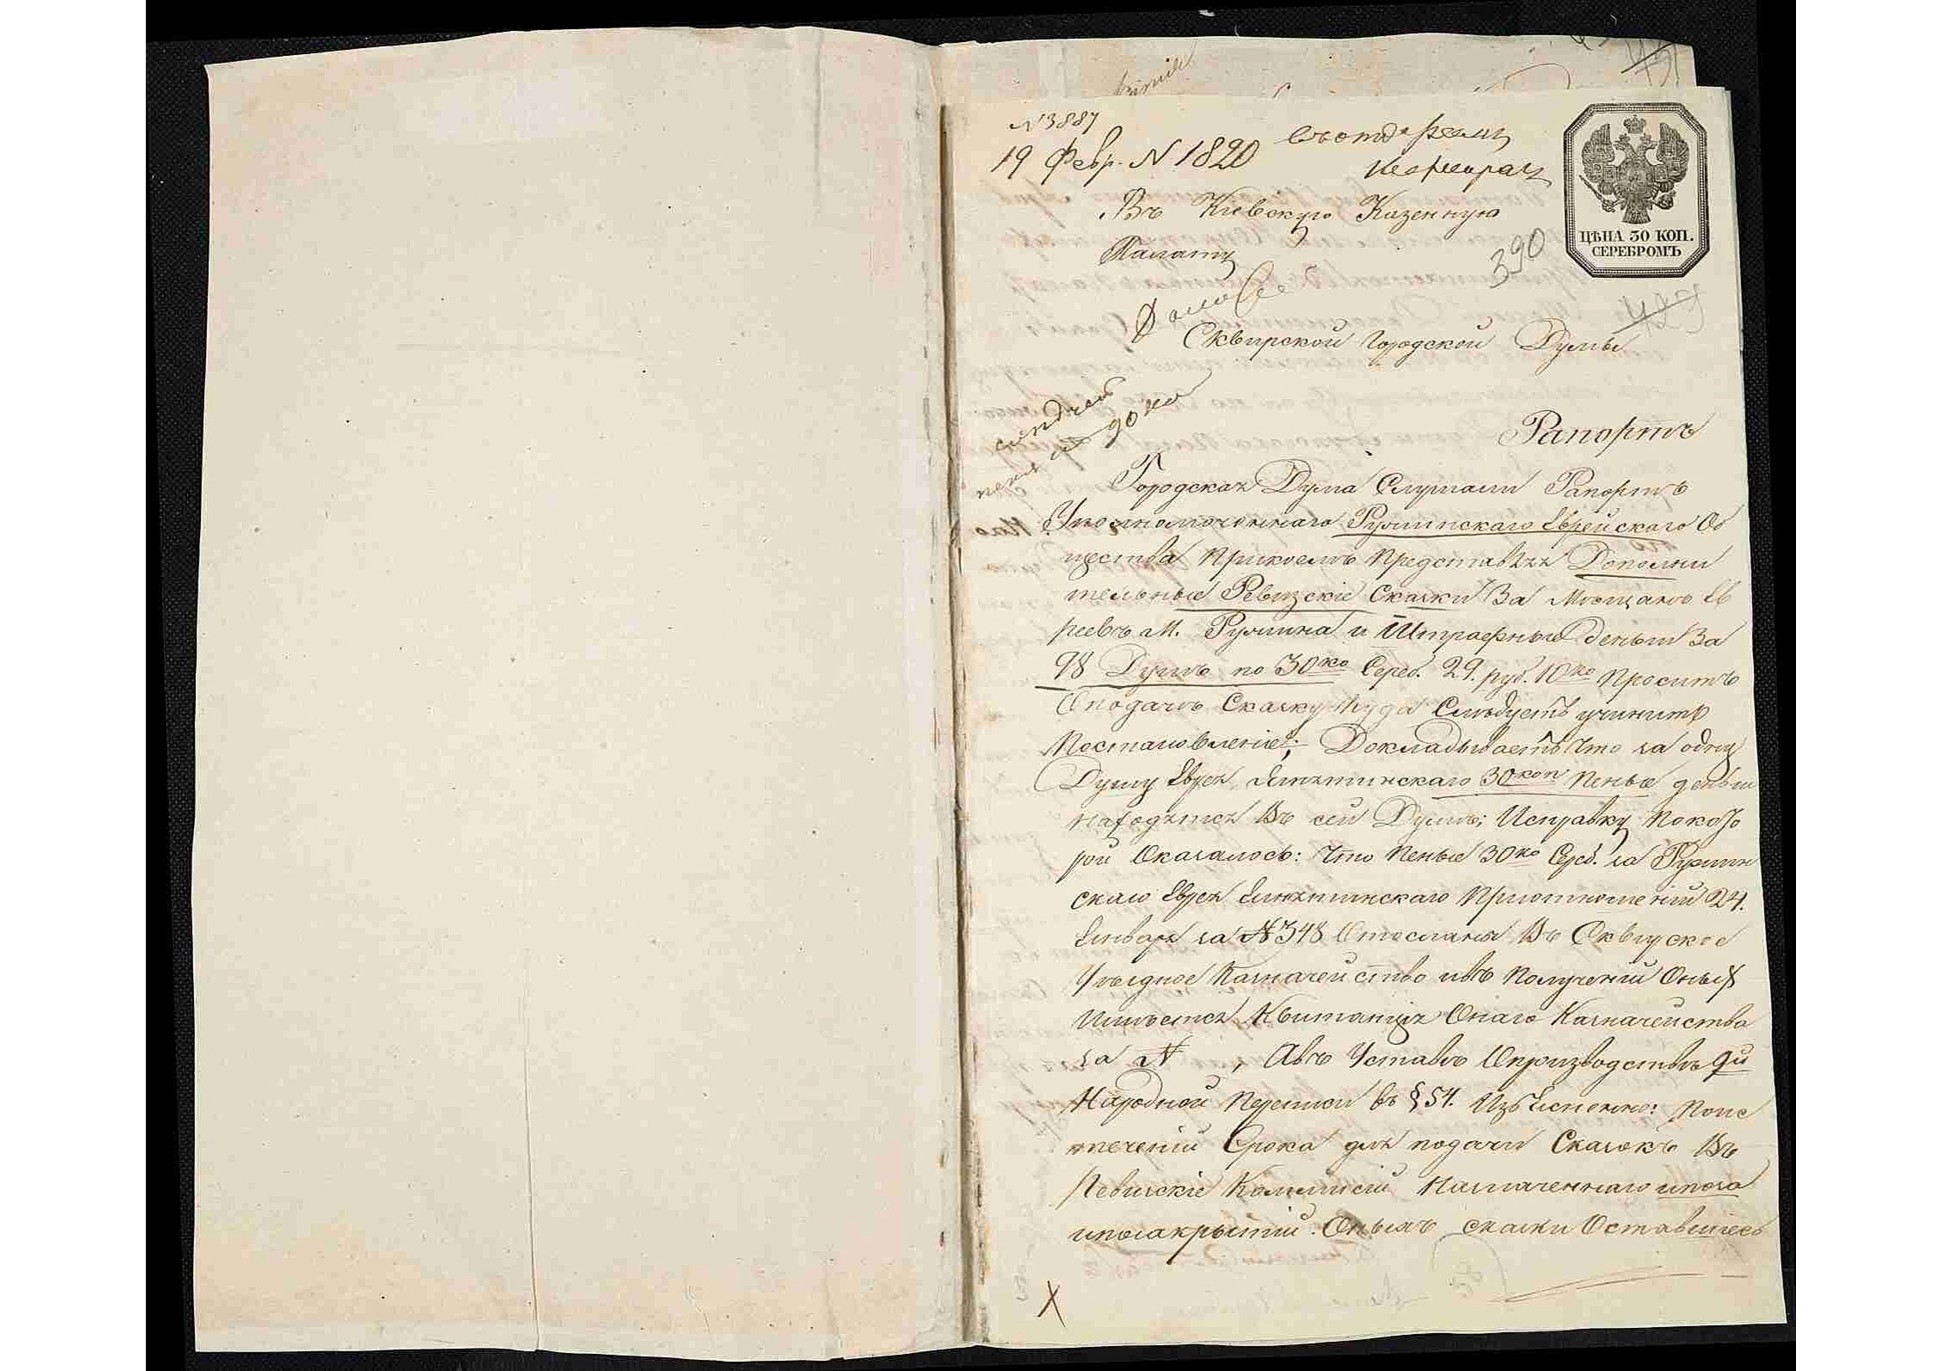 N 3887
19 Февр. N 1820
Въ Кіевскую Казенную
Палату
390
ЦѢНА 30 КОП.
СЕРЕБРОМЪ
429
Сквирской Городской Думы
90 ко
Рапортъ
Городская Дума Слушали Рапортъ
Уполномоченнаго Ружинскаго Еврейскаго Об
щества Прикоемъ Представляя Дополни
тельные Ревизскіе Скаски За Мѣщанъ Ев
реевъ м. Ружина и Штрафные деньги За
98 Душъ по 30 ко Сереб. 29. руб. 10 ко Проситъ
Оподачѣ Скаску куда Слѣдуетъ учинить
Постановленіе; Докладываетъ что за одну
Душу Еврея 30 коп Пенье деньги
находятся Въ сей Думѣ; Исправку Покото
рой Оказалось: Что Пенье 30 ко Сереб. за Ружин
скаго Еврея Приотношеніи 24.
Генваря за N 348 Отосланы Въ Сквирское
Уѣздное Казначейство ивъ Полученіи Оныхъ
Имѣется Квитанція Онаго Казначейства
за N , Авъ Уставѣ Опроизводствѣ 9й
Народной Переписи въ § 54. Изъяснено: Поис
теченіи Срока для подачи Сказокъ Въ
Ревизскіе Коммисіи Назначеннаго ипоза
ипозакрытіи Оныхъ скаски Оставшіеся
X